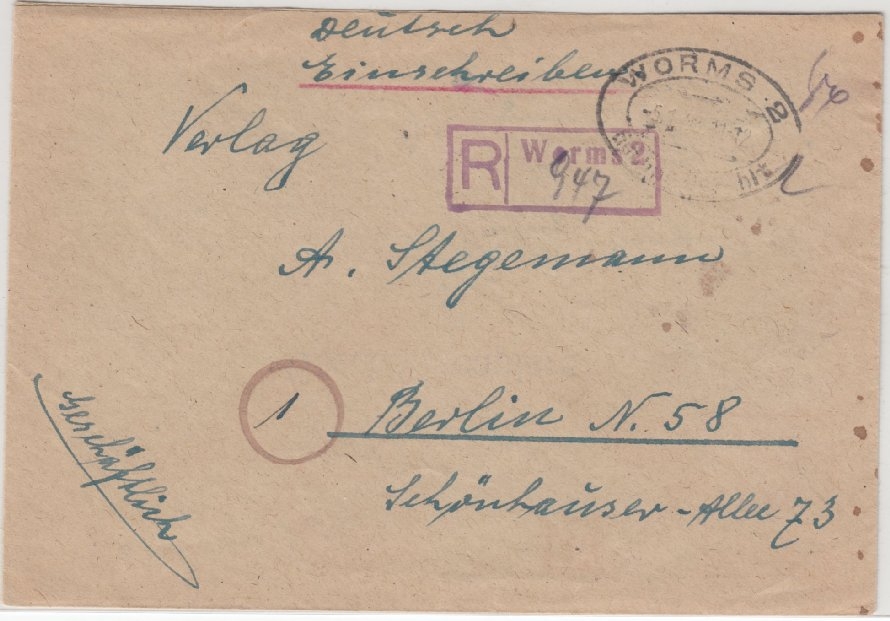 Deutsch
Einschreiben
WORMS 2
Verlag
R Worms 2
947
A. Stegemann
1 Berlin N. 58
Schönhauser-Allee 73
Geschäftlich